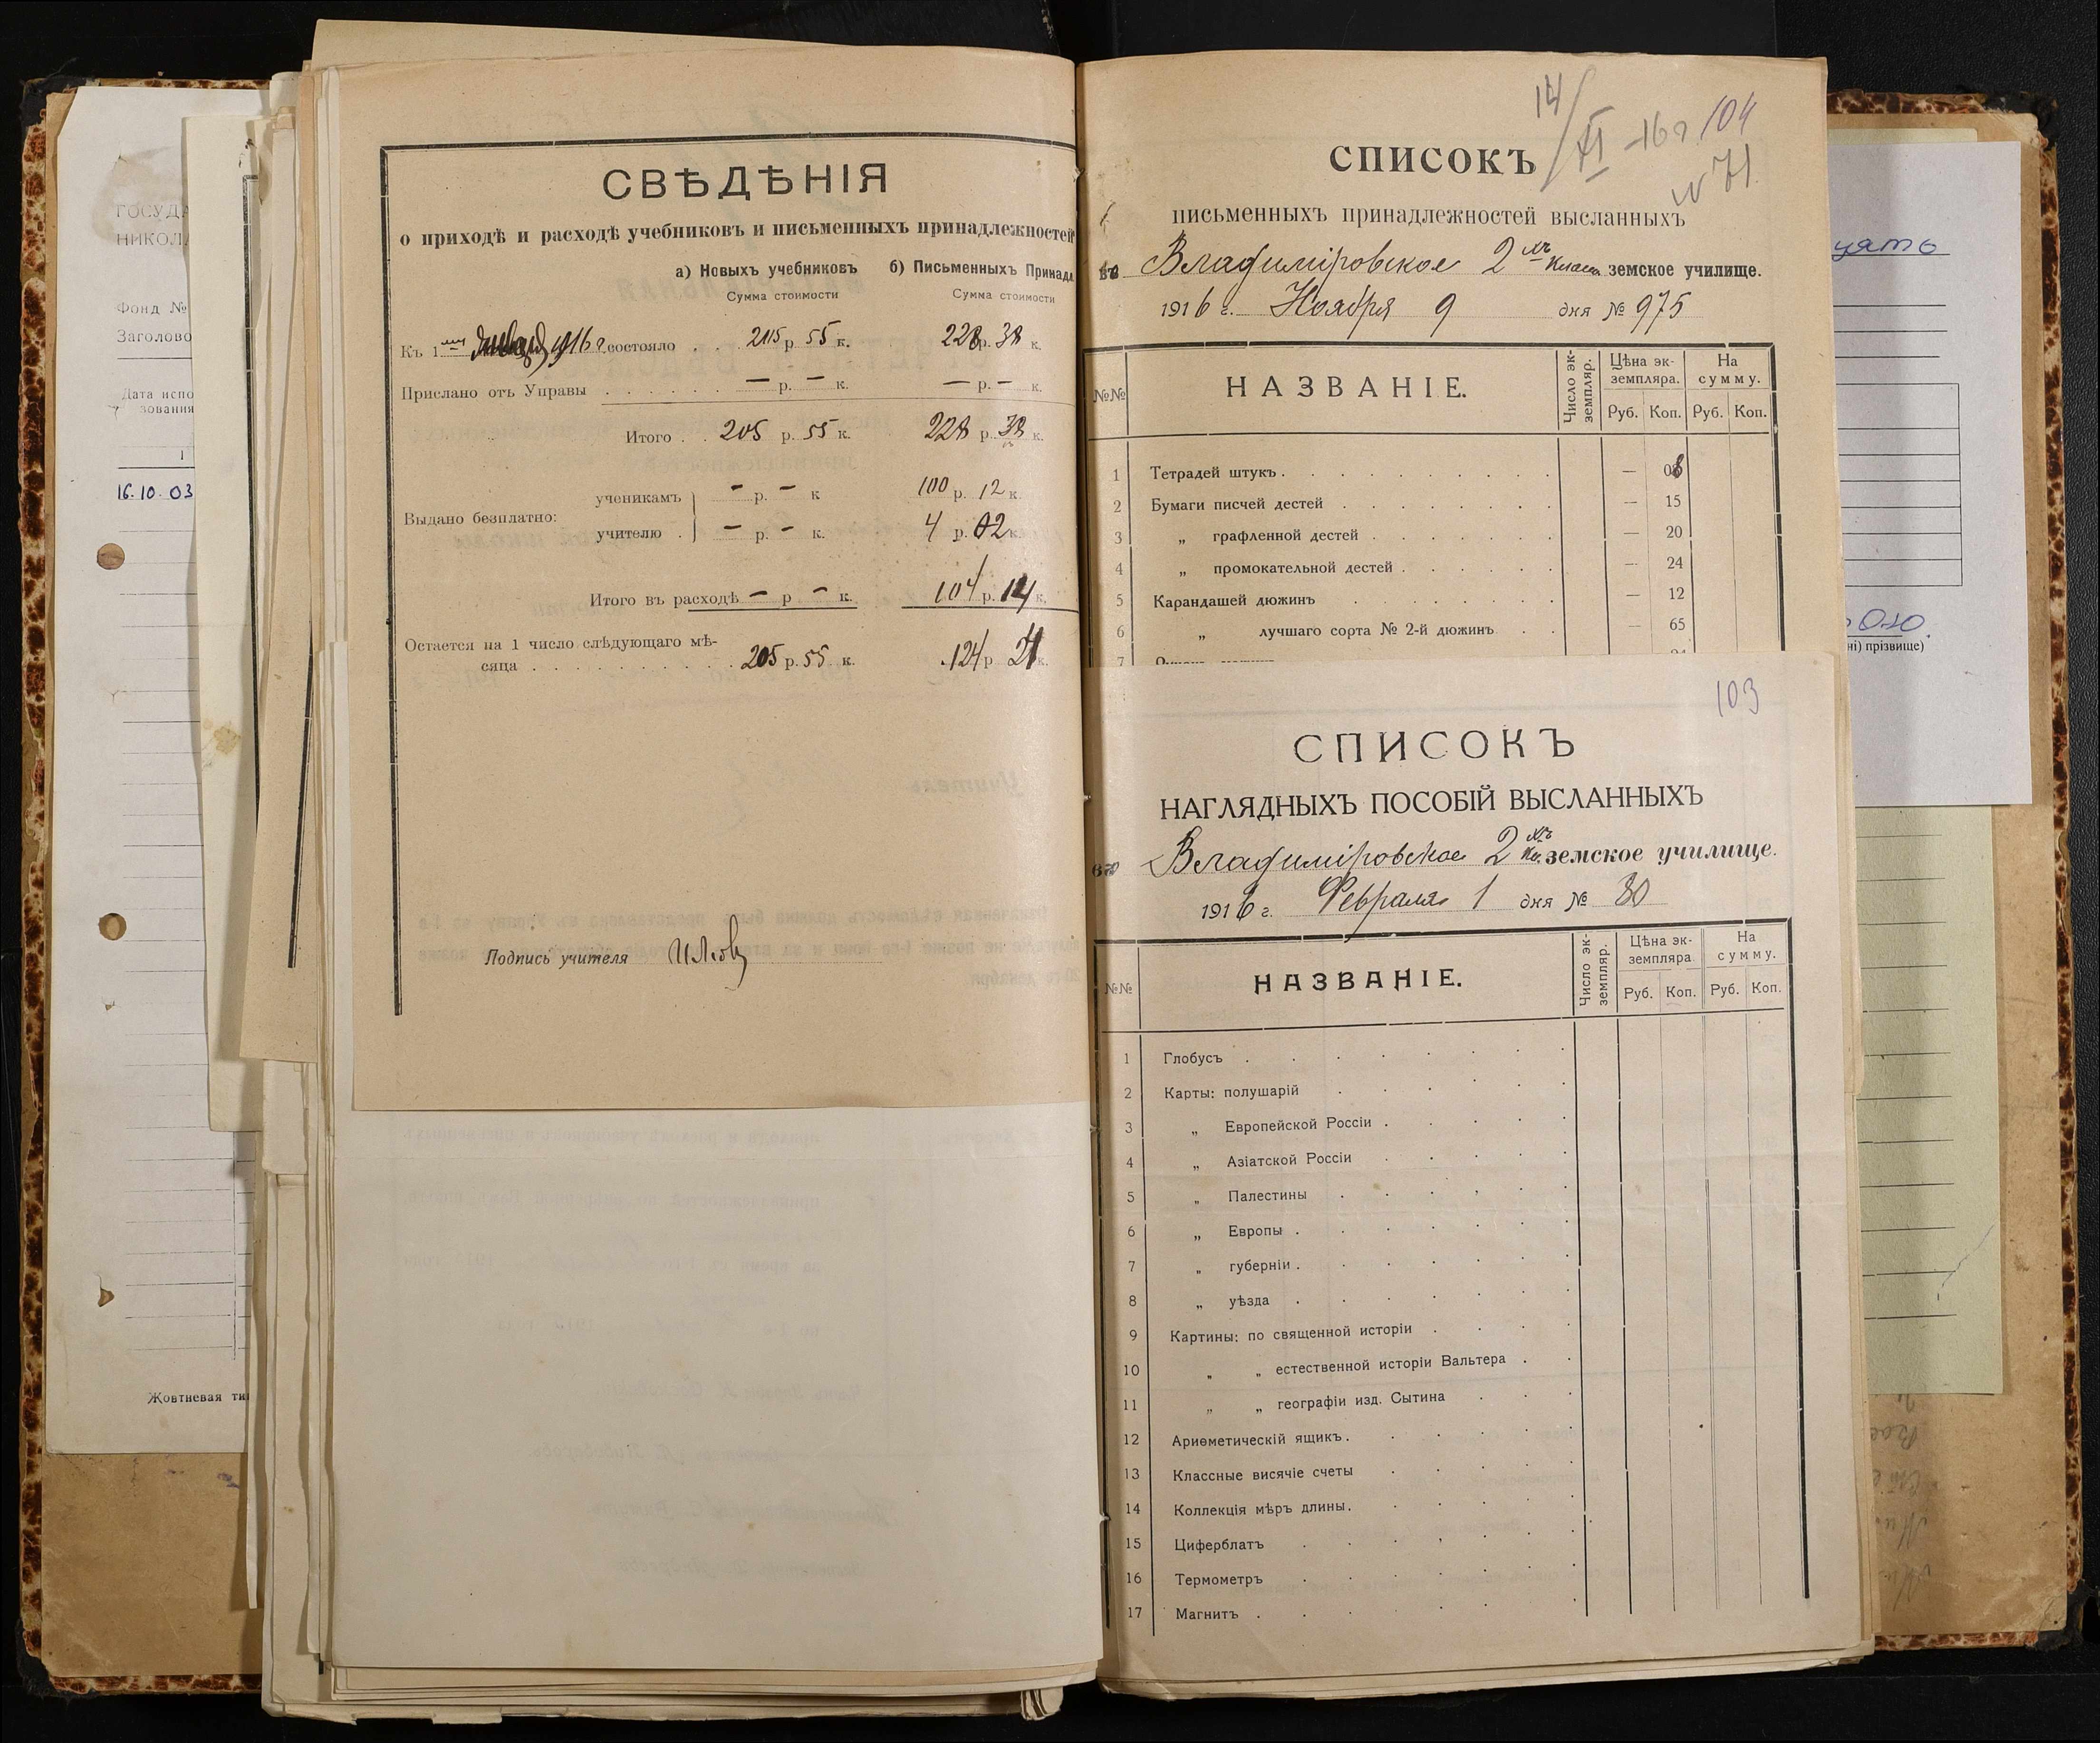 ГОСУДА
НИКОЛА
Фонд №
Заголово
Дата испо
зования
1
16.10.03
Жовтневая ти
СВѢДѢНІЯ
о приходѣ и расходѣ учебниковъ и письменныхъ принадлежностей
а) Новыхъ учебниковъ б) Письменныхъ Принад
Сумма стоимости Сумма стоимости
Къ 1 1916 г состояло . . 205 р. 55 к. 228 р. 38 к.
Прислано отъ Управы . . . . . . — р. — к. — р. — к.
Итого . . 205 р. 55 к. 228 р. 38 к.
ученикамъ — р. — к 100 р. 12 к.
Выдано безплатно:
учителю . — р. — к. 4 р. 02 к.
Итого въ расходѣ — р — к. 104 р. 14 к.
Остается на 1 число слѣдующаго мѣ-
сяца . . . . . . . . . . 205 р. 55 к. 124 р 24 к.
Подпись учителя
14/XI -16 г 104
№ 71
СПИСОКЪ
письменныхъ принадлежностей высланныхъ
во Владиміровское 2хъ класс. земское училище.
1916 г. Ноября 9 дня № 975
№№ НАЗВАНІЕ. Число эк-земпляр. Цѣна эк-земпляра. На сумму.
Руб. Коп. Руб. Коп.
1 Тетрадей штукъ . . . . . . . . . — 08
2 Бумаги писчей дестей . . . . . . . — 15
3 „ графленной дестей . . . . . . — 20
4 „ промокательной дестей . . . . . — 24
5 Карандашей дюжинъ . . . . . . . — 12
6 „ лучшаго сорта № 2-й дюжинъ . . — 65
7
103
СПИСОКЪ
НАГЛЯДНЫХЪ ПОСОБІЙ ВЫСЛАННЫХЪ
во Владиміровское 2хъ кл. земское училище.
1916 г. Февраля 1 дня № 30
№№ НАЗВАНІЕ. Число эк-земпляр. Цѣна эк-земпляра На сумму.
Руб. Коп. Руб. Коп.
1 Глобусъ . . . . . . . .
2 Карты: полушарій . . . . . .
3 „ Европейской Россіи . . . . .
4 „ Азіатской Россіи . . . . .
5 „ Палестины . . . . . .
6 „ Европы . . . . . . .
7 „ губерніи . . . . . . .
8 „ уѣзда . . . . . . .
9 Картины: по священной исторіи . . . .
10 „ „ естественной исторіи Вальтера . .
11 „ „ географіи изд. Сытина . . .
12 Ариѳметическій ящикъ . . . . . .
13 Классные висячіе счеты . . . . .
14 Коллекція мѣръ длины . . . . . .
15 Циферблатъ . . . . . . .
16 Термометръ . . . . . . .
17 Магнитъ . . . . . . .
ні) прізвище)